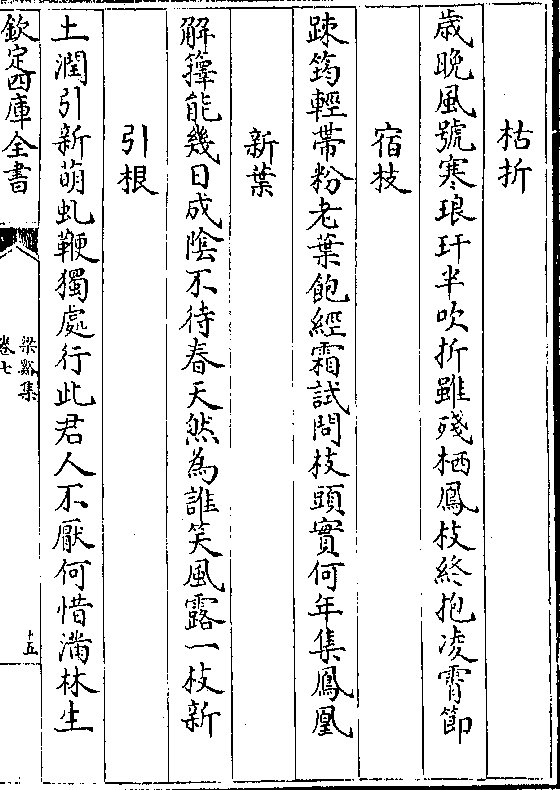 枯折
歳晚風號寒琅玕半吹折雖殘栖鳳枝終抱凌霄節
宿枝
疎筠輕帶粉老葉飽經霜試問枝頭實何年集鳳凰
新葉
解籜能幾日成隂不待春天然為誰笑風露一枝新
引根
土潤引新萌虬鞭獨處行此君人不厭何惜滿林生
欽定四庫全書
梁谿集
卷七
十五